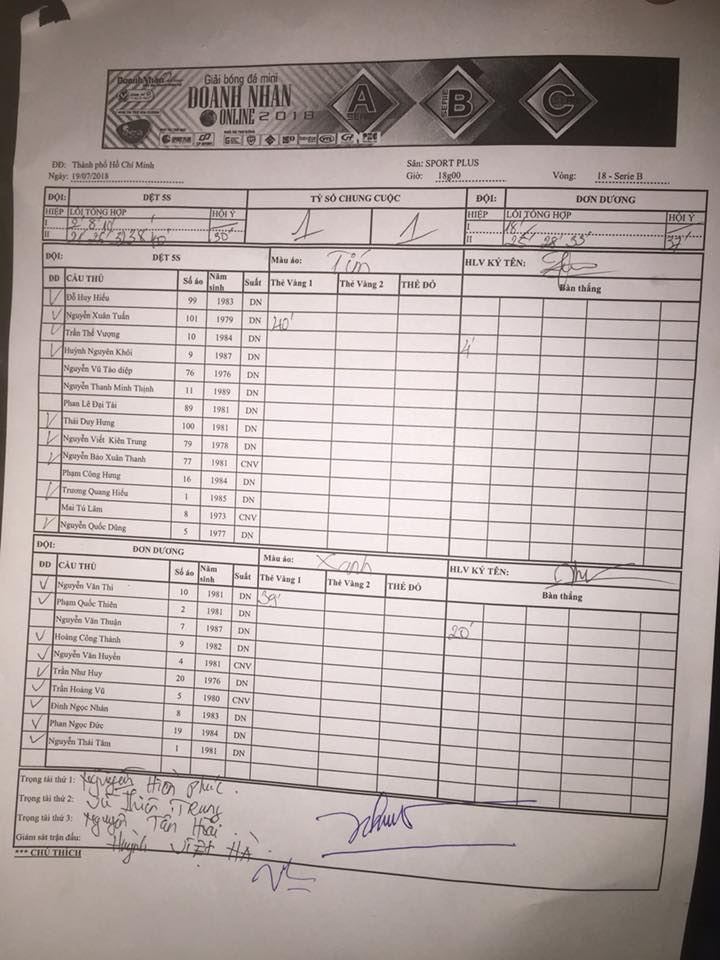 DoanhNhân
Giải bóng đá mini
DOANH NHÂN
ONLINE 2018
A SERIE
SERIE B
C SERIE
ĐĐ: Thành phố Hồ Chí Minh Sân: SPORT PLUS
Ngày: 19/07/2018 Giờ: 18g00 Vòng: 18 - Serie B
ĐỘI: DỆT 5S TỶ SỐ CHUNG CUỘC ĐỘI: ĐƠN DƯƠNG
HIỆP LỖI TỔNG HỢP HỘI Ý 1 1 HIỆP LỖI TỔNG HỢP HỘI Ý
I I 18'
II 30' II 25' 28' 33'
ĐỘI: DỆT 5S Màu áo: Tím HLV KÝ TÊN:
ĐD CẦU THỦ Số áo Năm sinh Suất Thẻ Vàng 1 Thẻ Vàng 2 THẺ ĐỎ Bàn thắng
Đỗ Huy Hiếu 99 1983 DN
Nguyễn Xuân Tuấn 101 1979 DN 40'
Trần Thế Vượng 10 1984 DN
Huỳnh Nguyên Khôi 9 1987 DN 4'
Nguyễn Vũ Tảo diệp 76 1976 DN
Nguyễn Thanh Minh Thịnh 11 1989 DN
Phan Lê Đại Tài 89 1981 DN
Thái Duy Hưng 100 1981 DN
Nguyễn Viết Kiên Trung 79 1978 DN
Nguyễn Bảo Xuân Thanh 77 1981 CNV
Phạm Công Hưng 16 1984 DN
Trương Quang Hiếu 1 1985 DN
Mai Tú Lâm 8 1973 CNV
Nguyễn Quốc Dũng 5 1977 DN
ĐỘI: ĐƠN DƯƠNG Màu áo: Xanh HLV KÝ TÊN:
ĐD CẦU THỦ Số áo Năm sinh Suất Thẻ Vàng 1 Thẻ Vàng 2 THẺ ĐỎ Bàn thắng
Nguyễn Văn Thi 10 1981 DN 39'
Phạm Quốc Thiên 2 1981 DN
Nguyễn Văn Thuận 7 1987 DN 20'
Hoàng Công Thành 9 1982 DN
Nguyễn Văn Huyền 4 1981 CNV
Trần Như Huy 20 1976 DN
Trần Hoàng Vũ 5 1980 CNV
Đinh Ngọc Nhân 8 1983 DN
Phan Ngọc Đức 19 1984 DN
Nguyễn Thái Tâm 1 1981 DN
Trọng tài thứ 1: Nguyễn Hiền Phúc.
Trọng tài thứ 2: Vũ Thiên Trung
Trọng tài thứ 3: Nguyễn Tấn Hoài
Giám sát trận đấu: Huỳnh Việt Hà
*** CHÚ THÍCH